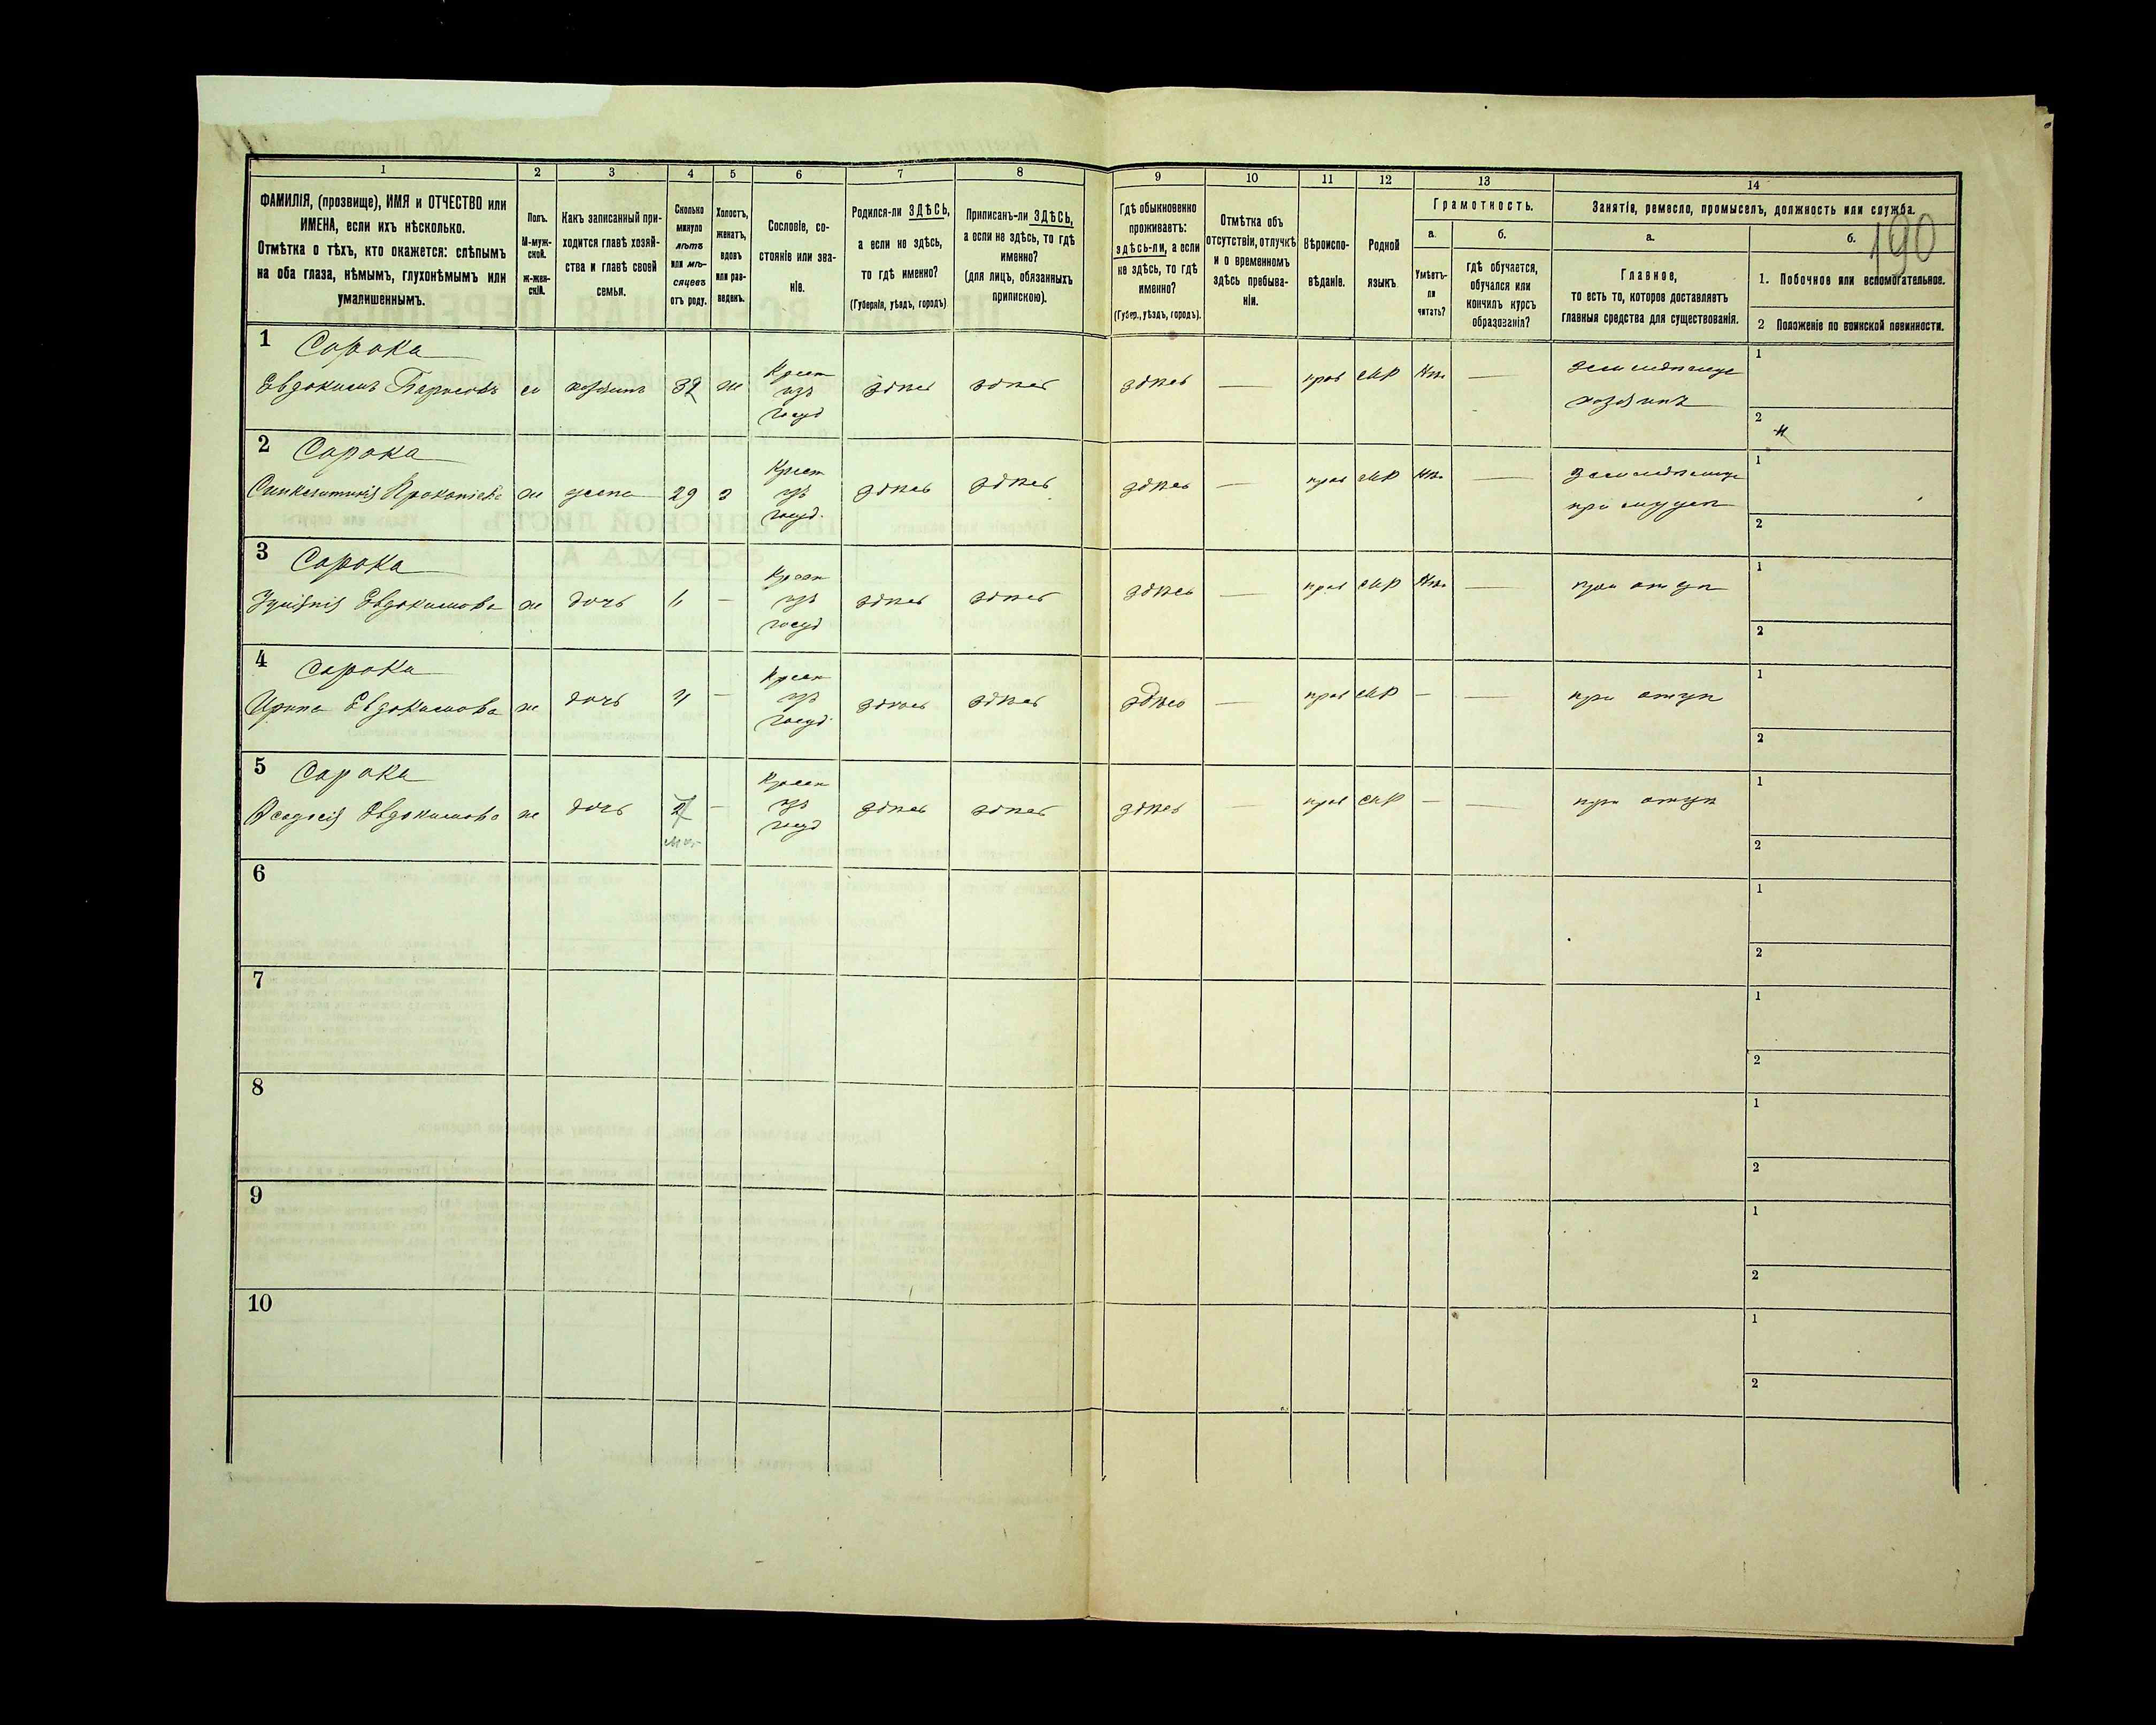 190
1
2
3
4
5
6
7
8
9
10
11
12
13
14
ФАМИЛІЯ, (прозвище), ИМЯ и ОТЧЕСТВО или
ИМЕНА, если ихъ нѣсколько.
Отмѣтка о тѣхъ, кто окажется: слѣпымъ
на оба глаза, нѣмымъ, глухонѣмымъ или
умалишеннымъ.
Полъ.
М-муж-
ской.
ж-жен-
скій.
Какъ записанный при-
ходится главѣ хозяй-
ства и главѣ своей
семьи.
Сколько
минуло
лѣтъ
или мѣ-
сяцевъ
отъ роду.
Холостъ,
женатъ,
вдовъ
или раз-
веденъ.
Сословіе, со-
стояніе или зва-
ніе.
Родился-ли ЗДѢСЬ,
а если не здѣсь,
то гдѣ именно?
(Губернія, уѣздъ, городъ).
Приписанъ-ли ЗДѢСЬ,
а если не здѣсь, то гдѣ
именно?
(для лицъ, обязанныхъ
припискою).
Гдѣ обыкновенно
проживаетъ:
здѣсь-ли, а если
не здѣсь, то гдѣ
именно?
(Губер., уѣздъ, городъ).
Отмѣтка объ
отсутствіи, отлучкѣ
и о временномъ
здѣсь пребыва-
ніи.
Вѣроиспо-
вѣданіе.
Родной
языкъ.
Грамотность.
а.
Умѣетъ-
ли
читать?
б.
гдѣ обучается,
обучался или
кончилъ курсъ
образованія?
Занятія, ремесло, промыселъ, должность или служба.
а.
Главное,
то есть то, которое доставляетъ
главныя средства для существованія.
б.
1. Побочное или вспомогательное.
2 Положеніе по воинской повинности.
1 Сорока
Евдокимъ м хозяинъ 32 ж Крест изъ госуд здѣсь здѣсь здѣсь — прав мр — хозяинъ
1
2
2 Сорока
ж жена 29 з Крест изъ госуд. здѣсь здѣсь здѣсь — прав мр — при мужѣ
1
2
3 Сорока
Евдокимова ж дочь — Крест изъ госуд здѣсь здѣсь здѣсь — прав мр — при отцѣ
1
2
4 Сорока
Ирина Евдокимова ж дочь 4 — Крест изъ госуд здѣсь здѣсь здѣсь — прав мр — — при отцѣ
1
2
5 Сорока
Ѳеодосія Евдокимова ж дочь — Крест изъ госуд здѣсь здѣсь здѣсь — прав мр — — при отцѣ
1
2
6
1
2
7
1
2
8
1
2
9
1
2
10
1
2